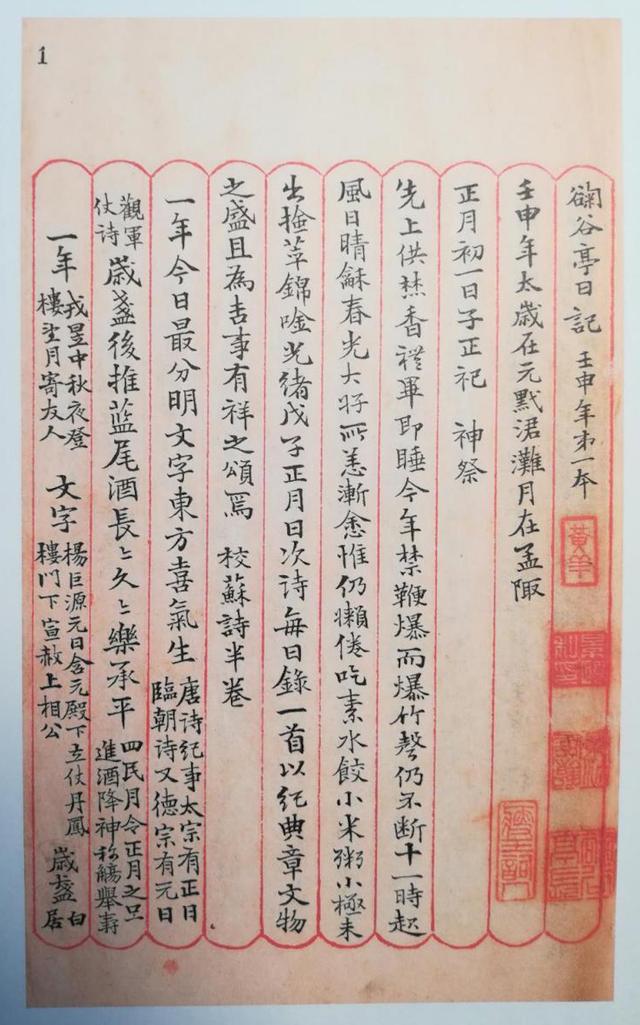 1
谷亭日記 壬申年第一本
黃羊
壬申年太歲在元黓涒灘月在孟陬
正月初一日子正祀 神祭
先上供焚香禮畢即睡今年禁鞭爆而爆竹聲仍不斷十一時起
風日晴龢春光大好所恙漸愈惟仍懶倦吃素水餃小米粥小極未
出撿莘錦唫光緒戊子正月日次詩每日錄一首以紀典章文物
之盛且為吉事有祥之頌焉 校蘇詩半卷
一年今日最分明文字東方喜氣生 唐詩紀事太宗有正日臨朝詩又德宗有元日
觀軍仗詩 歲盞後推藍尾酒長〻久〻樂承平 四民月令正月之旦進酒降神称觴舉壽
一年 戎昱中秋夜登樓望月寄友人 文字 楊巨源元日含元殿下立仗丹鳳樓門下宣赦上相公 歲盞 白居